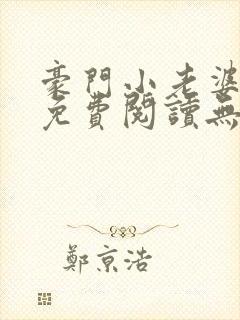 豪門小老婆
免費閱讀無
鄭京浩